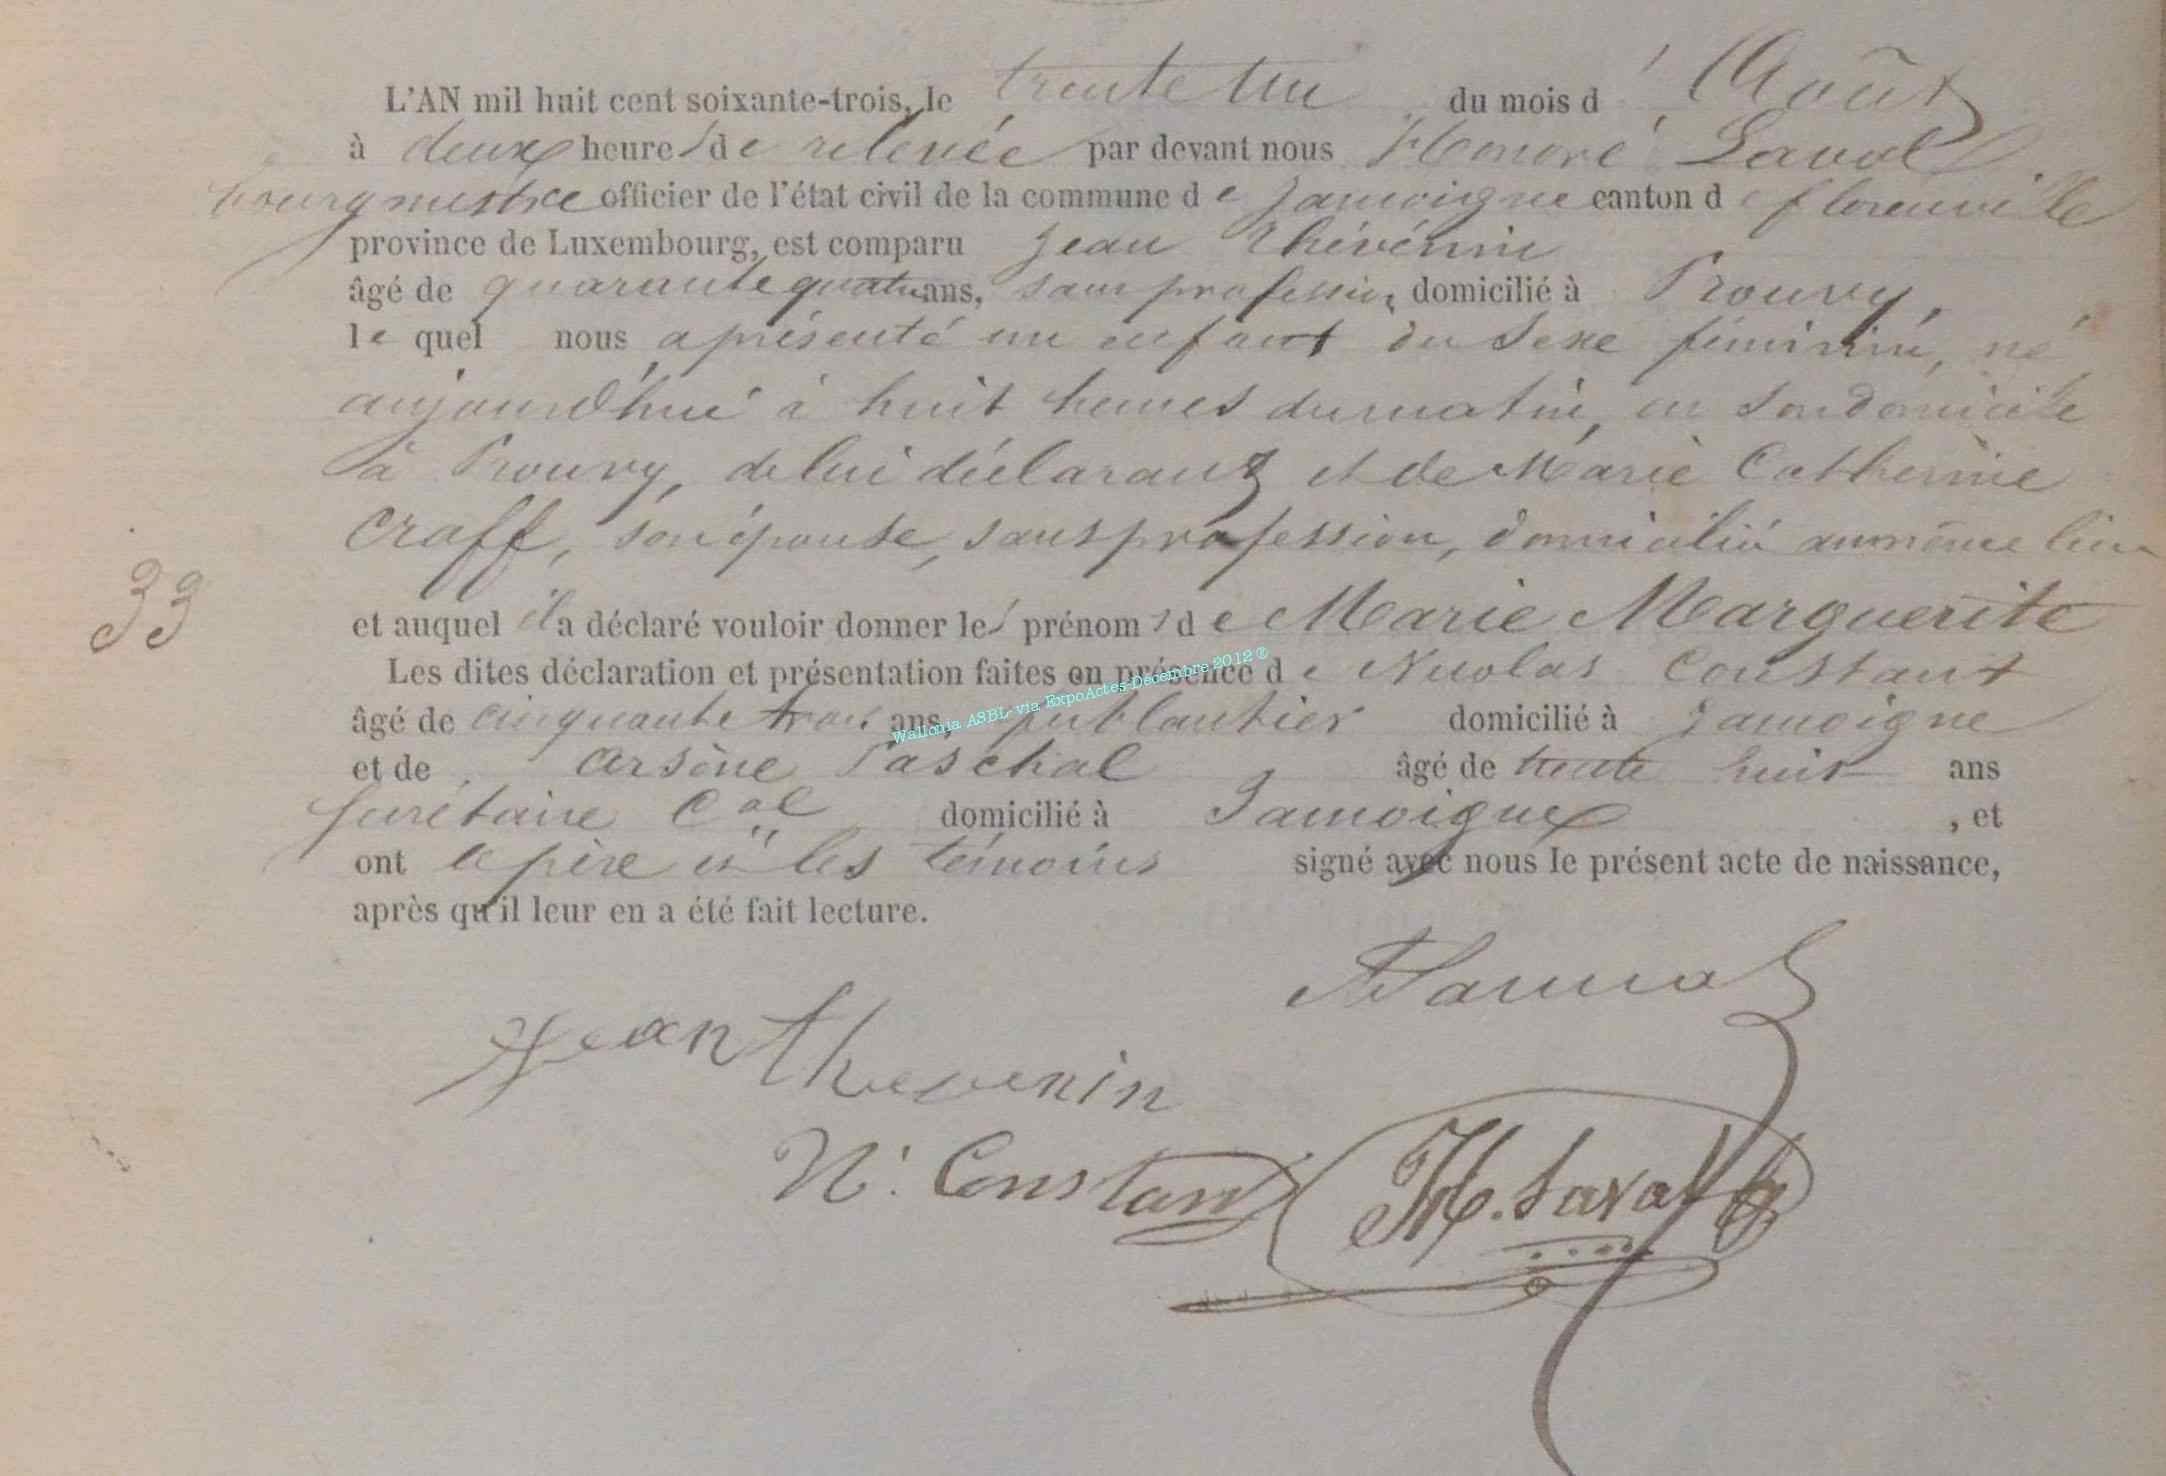 L'AN mil huit cent soixante-trois, le trente un du mois d'Août
à deux heures de relevée par devant nous Honoré Laval
bourgmestre officier de l'état civil de la commune de Jamoigne canton de florenville
province de Luxembourg, est comparu Jean Thévénin
âgé de quarante quatre ans, sans profession, domicilié à Prouvy,
lequel nous a présenté un enfant du sexe féminin, né
aujourd'hui à huit heures du matin, en son domicile
à Prouvy, de lui déclarant et de Marie Catherine
Craff, son épouse, sans profession, domicilié au même lieu
33
et auquel il a déclaré vouloir donner les prénoms de Marie Marguerite
Les dites déclaration et présentation faites en présence de Nicolas Constant
âgé de cinquante trois ans, domicilié à Jamoigne
et de Arsène Paschal âgé de trente huit ans
secrétaire Cal domicilié à Jamoigne, et
ont le père et les témoins signé avec nous le présent acte de naissance,
après qu'il leur en a été fait lecture.
Wallonia ASBL via ExpoActes-Décembre 2012 ®
Jean thevenin
N. Constant
H. Laval